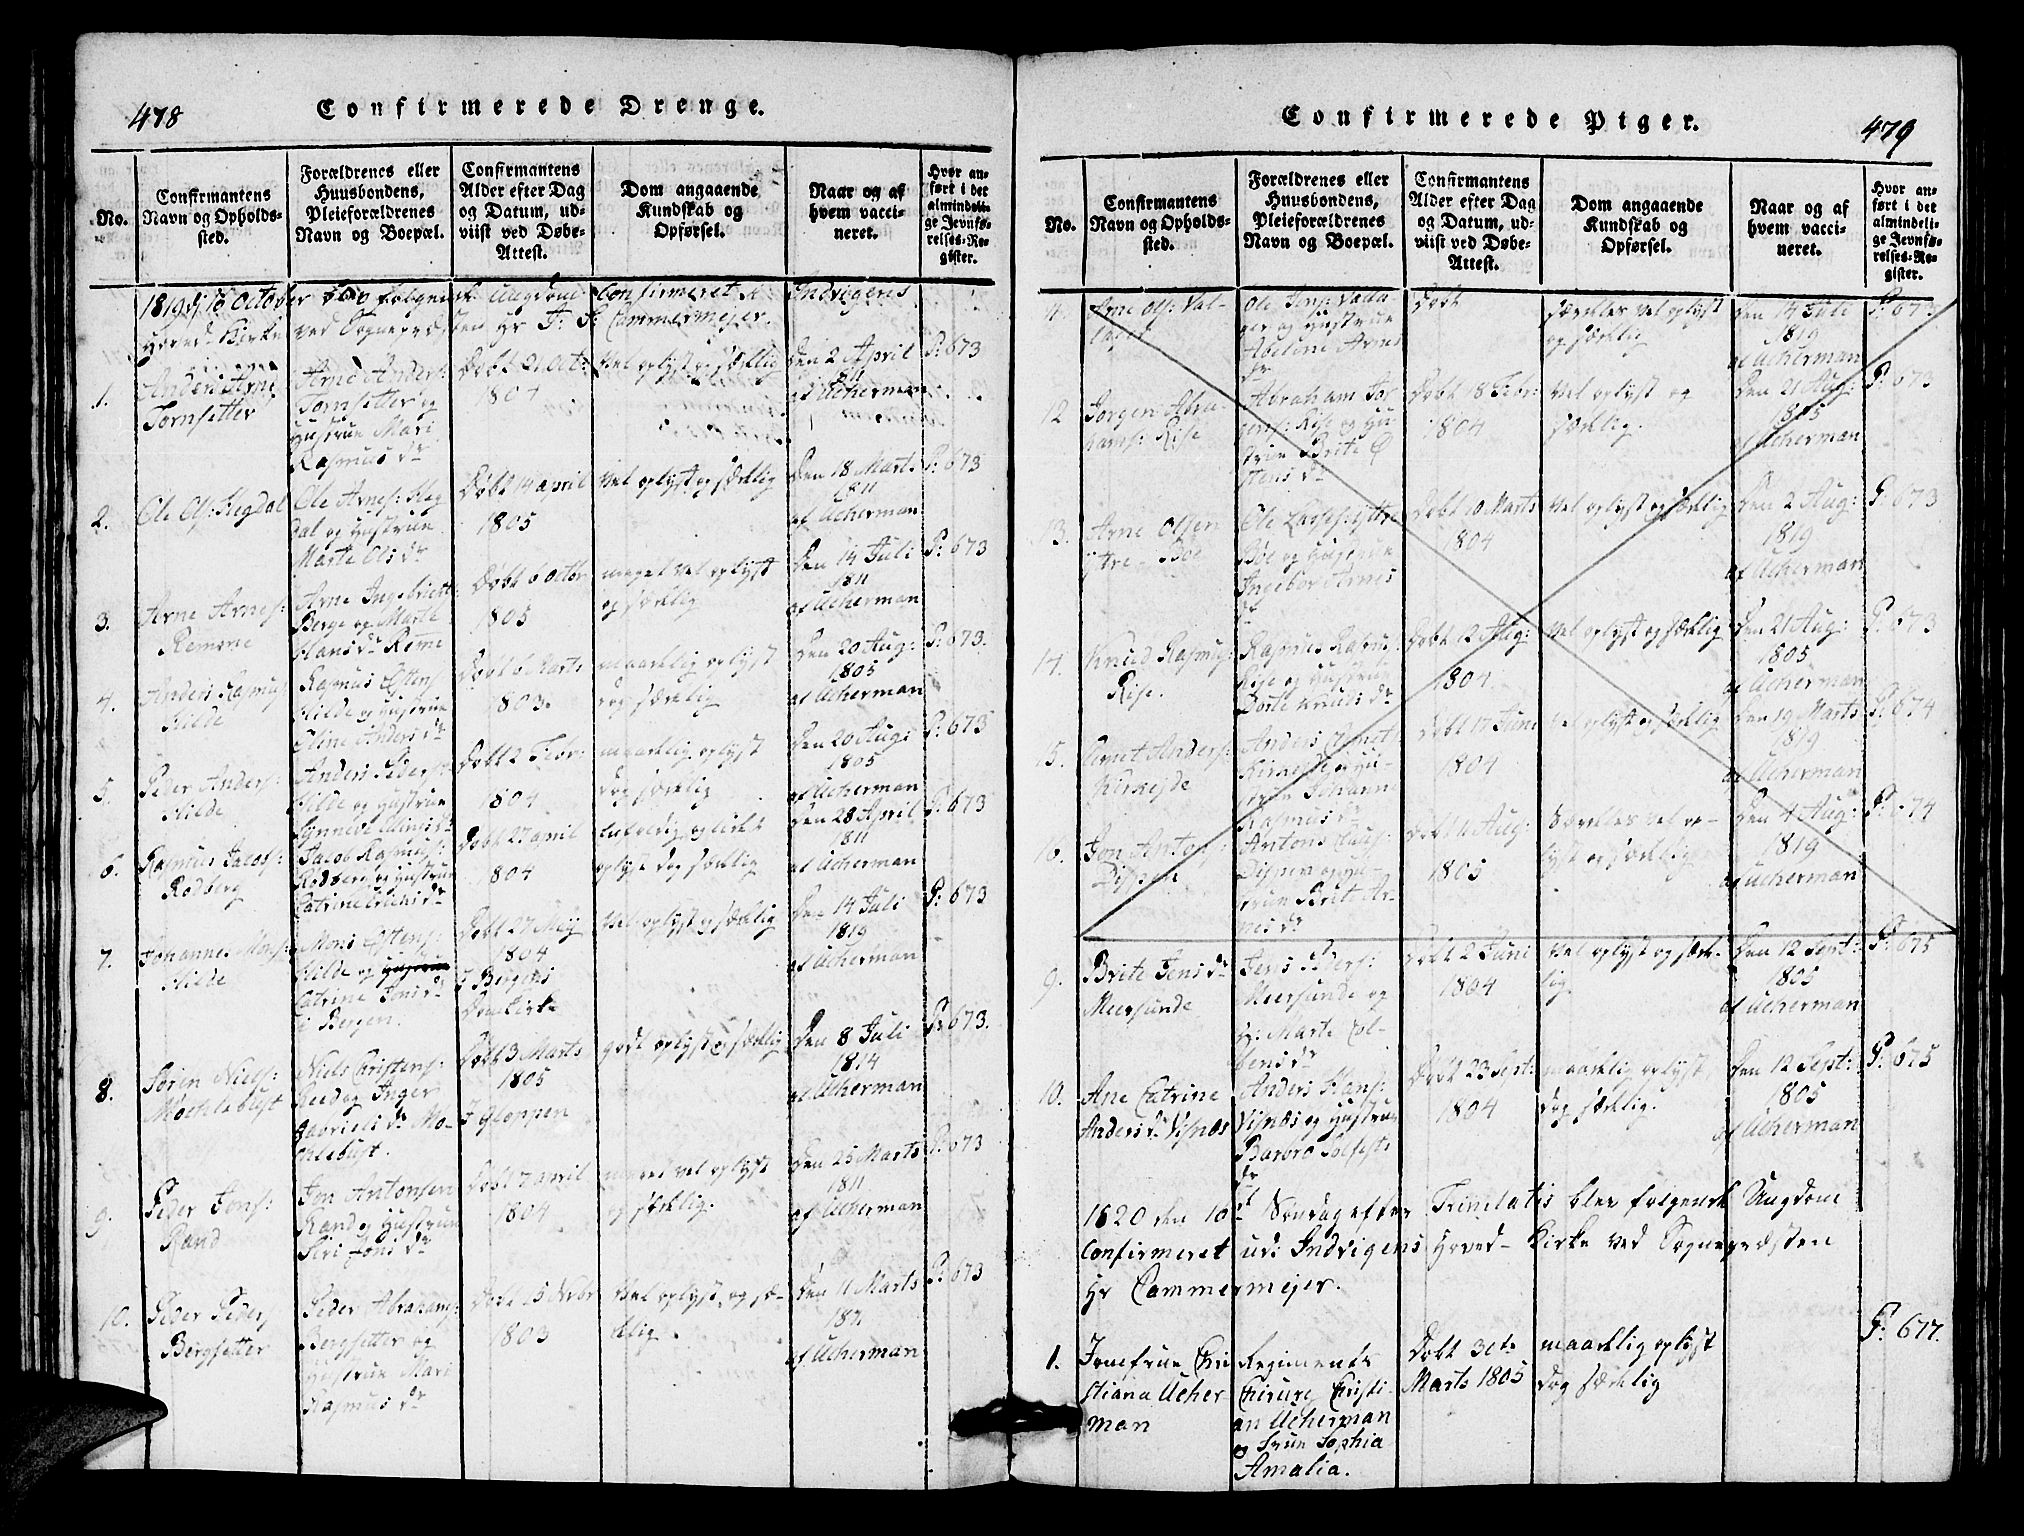 478
Confirmerede Drenge.
No.
Confirmantens
Navn og Opholds-
sted.
Forældrenes eller
Huusbondens,
Pleieforældrenes
Navn og Boepæl.
Confirmantens
Alder efter Dag
og Datum, ud-
viist ved Døbe-
Attest.
Dom angaaende
Kundskab og
Opførsel.
Naar og af
hvem vacci-
neret.
Hvor an-
ført i det
almindeli-
ge Jevnfø-
relses-Re-
gister.
October Confirmeret Indvigens
Hoved Kirke ved Sognepræsten Hr F: S: Cammermejer.
1.
Anders Arne
Tornsetter
Arne Anders:
Tornsetter og
Hustrue Mari
Rasmus dr
Døbt 21 Octr
1804
Vel oplyst og sædelig
Den 2 April
1811
af Ucherman
P: 673
2.
Ole Ols: Hegdal
Ole Arnes: Heg
dal og Hustrue
Marte Ols dr
Døbt 14 april
1805
Vel oplyst og sædelig
Den 18 Marts
1811
af Ucherman
P: 673
3.
Arne Arnes:
Arne Ingebrickt
Berge og Marte
Hans dr
Døbt 6 Octbr
1805
meget vel oplyst
og sædelig
Den 14 Juli
1811
af Ucherman
P: 673
4.
Anders Rasmus
Hilde
Rasmus
Hilde og Hustrue
Eline Anders dr
Døbt 6 Marts
1803.
maadelig oplyst
dog sædelig
Den 20 Aug:
1805
af Ucherman
P: 673.
5.
Peder Anders:
Hilde
Anders Peders
Hilde og Hustrue
Døbt 2 Febr:
1804
maadelig oplyst
dog sædelig
Den 20 Aug:
1805
af Ucherman
P: 673
6.
Rasmus Jacobs:
Rødberg
Jacob Rasmus:
Rødberg og Hustrue
Catrine
Døbt 27 april
1804
oplyst dog sædelig
Den 28 April
1811
af Ucherman
P: 673
7.
Johannes Mons:
Hilde
Mons
Hilde og
Catrine Jons dr
i Bergen.
Døbt 27 Mej
1804
I Bergens
Domkirke
Vel oplyst og sædelig
Den 14 Juli
1819
af Ucherman
P: 673
8.
Søren Niels:
Moehlebust
Niels Christens:
Reed og Inger
Gabriels dr Mo-
ehlebust.
Døbt 3 Marts
1805
I Gloppen
godt oplyst og sædelig
Den 8 Juli
1814
af Ucherman
P: 673.
9.
Peder Jons:
Rand
Jon Antonsen
Rand og Hustrue
Siri Jons dr
Døbt 7 april
1804
meget vel oplyst
og sædelig.
Den 25 Marts
1811
af Ucherman
P: 673
10.
Peder Peders
Bergsetter
Peder Abraham:
Bergsetter og
Hustrue Mari
Rasmus dr
Døbt 15
1803
Vel oplyst og sæ-
delig.
Den 11 Marts
1811
af Ucherman
P: 673
Confirmerede Piger.
479
No.
Confirmantens
Navn og Opholds-
sted.
Forældrenes eller
Huusbondens,
Pleieforældrenes
Navn og Boepæl.
Confirmantens
Alder efter Dag
og Datum, ud-
viist ved Døbe-
Attest.
Dom angaaende
Kundskab og
Opførsel.
Naar og af
hvem vacci-
neret.
Hvor an-
ført i det
almindeli-
ge Jevnfø-
relses-Re-
gister.
Arne Ols: Val-
Ole Jens: Valla
ger og Hustrue
Abelone Arnes
dr
Døbt
særdeles vel oplyst
og sædelig
Den 14 Juli
1819
af Ucherman
P: 673
12
Jørgen Abra-
hams: Rise
Abraham Jør
gens: Rise og Hu
strue Brite
stens dr
Døbt 18 Febr:
1804
Vel oplyst og
sædelig.
Den 21 Aug:
1805
af Ucherman
P: 673
13.
Arne Olsen
Ytre-Boe
Ole Lasses: Yttre
Bøe og Hustrue
Ingebor Arnes
dr
Døbt 10 Marts
1804
Vel oplyst og sædelig
Den 2 Aug:
1819
af Ucherman
P: 673
14.
Knud Rasmus
Rise.
Rasmus Rasmus
Rise og Hustrue
Dorte Knuds dr
Døbt 12 Aug:
1804.
Vel oplyst og sædelig
Den 21 Aug:
1805
af Ucherman
P: 673
5.
Amet Anders:
Kirkejde
Anders Amet
Kirkejde og Hu-
strue Johann
Rasmus dr
Døbt 17 June
1804
Vel oplyst og sædelig
Den 19 Marts
1819
af Ucherman
P: 674
16.
Jon Anton:
Antons Claus:
strue Brit Ar-
nes dr
Døbt 11 Aug:
1805
Særdeles vel op-
lyst og sædelig
Den 4 Aug:
1819
af Ucherman
P: 674
9.
Brite Jens dr
Meersunde
Jens Peders:
Meersunde og
H: Marte Col-
bens dr
Døbt 2 Juni
1804
Vel oplyst og sæde-
lig.
Den 12 Sept:
1805
af Ucherman
P: 675
10.
Ane Catrine
Anders dr Visnæs
Anders Hans:
Visnæs og Hustrue
Barbro
dr
Døbt 23 Sept:
1804
maadelig oplyst
dog sædelig.
Den 12 Sept:
1805
af Ucherman
P: 675
1820 den 10de Søndag efter Trinitatis blev følgende Ungdom
Confirmeret udi Indvigens Hoved-Kirke ved Sognepræsten
Hr Cammermejer.
1.
Jomfrue Chri
stiana Ucher
man
Regiments
Chirurg Christi-
an Ucherman
og Frue Sophia
Amalia.
Døbt 3die
Marts 1805
maadelig oplyst
dog sædelig
P: 677.